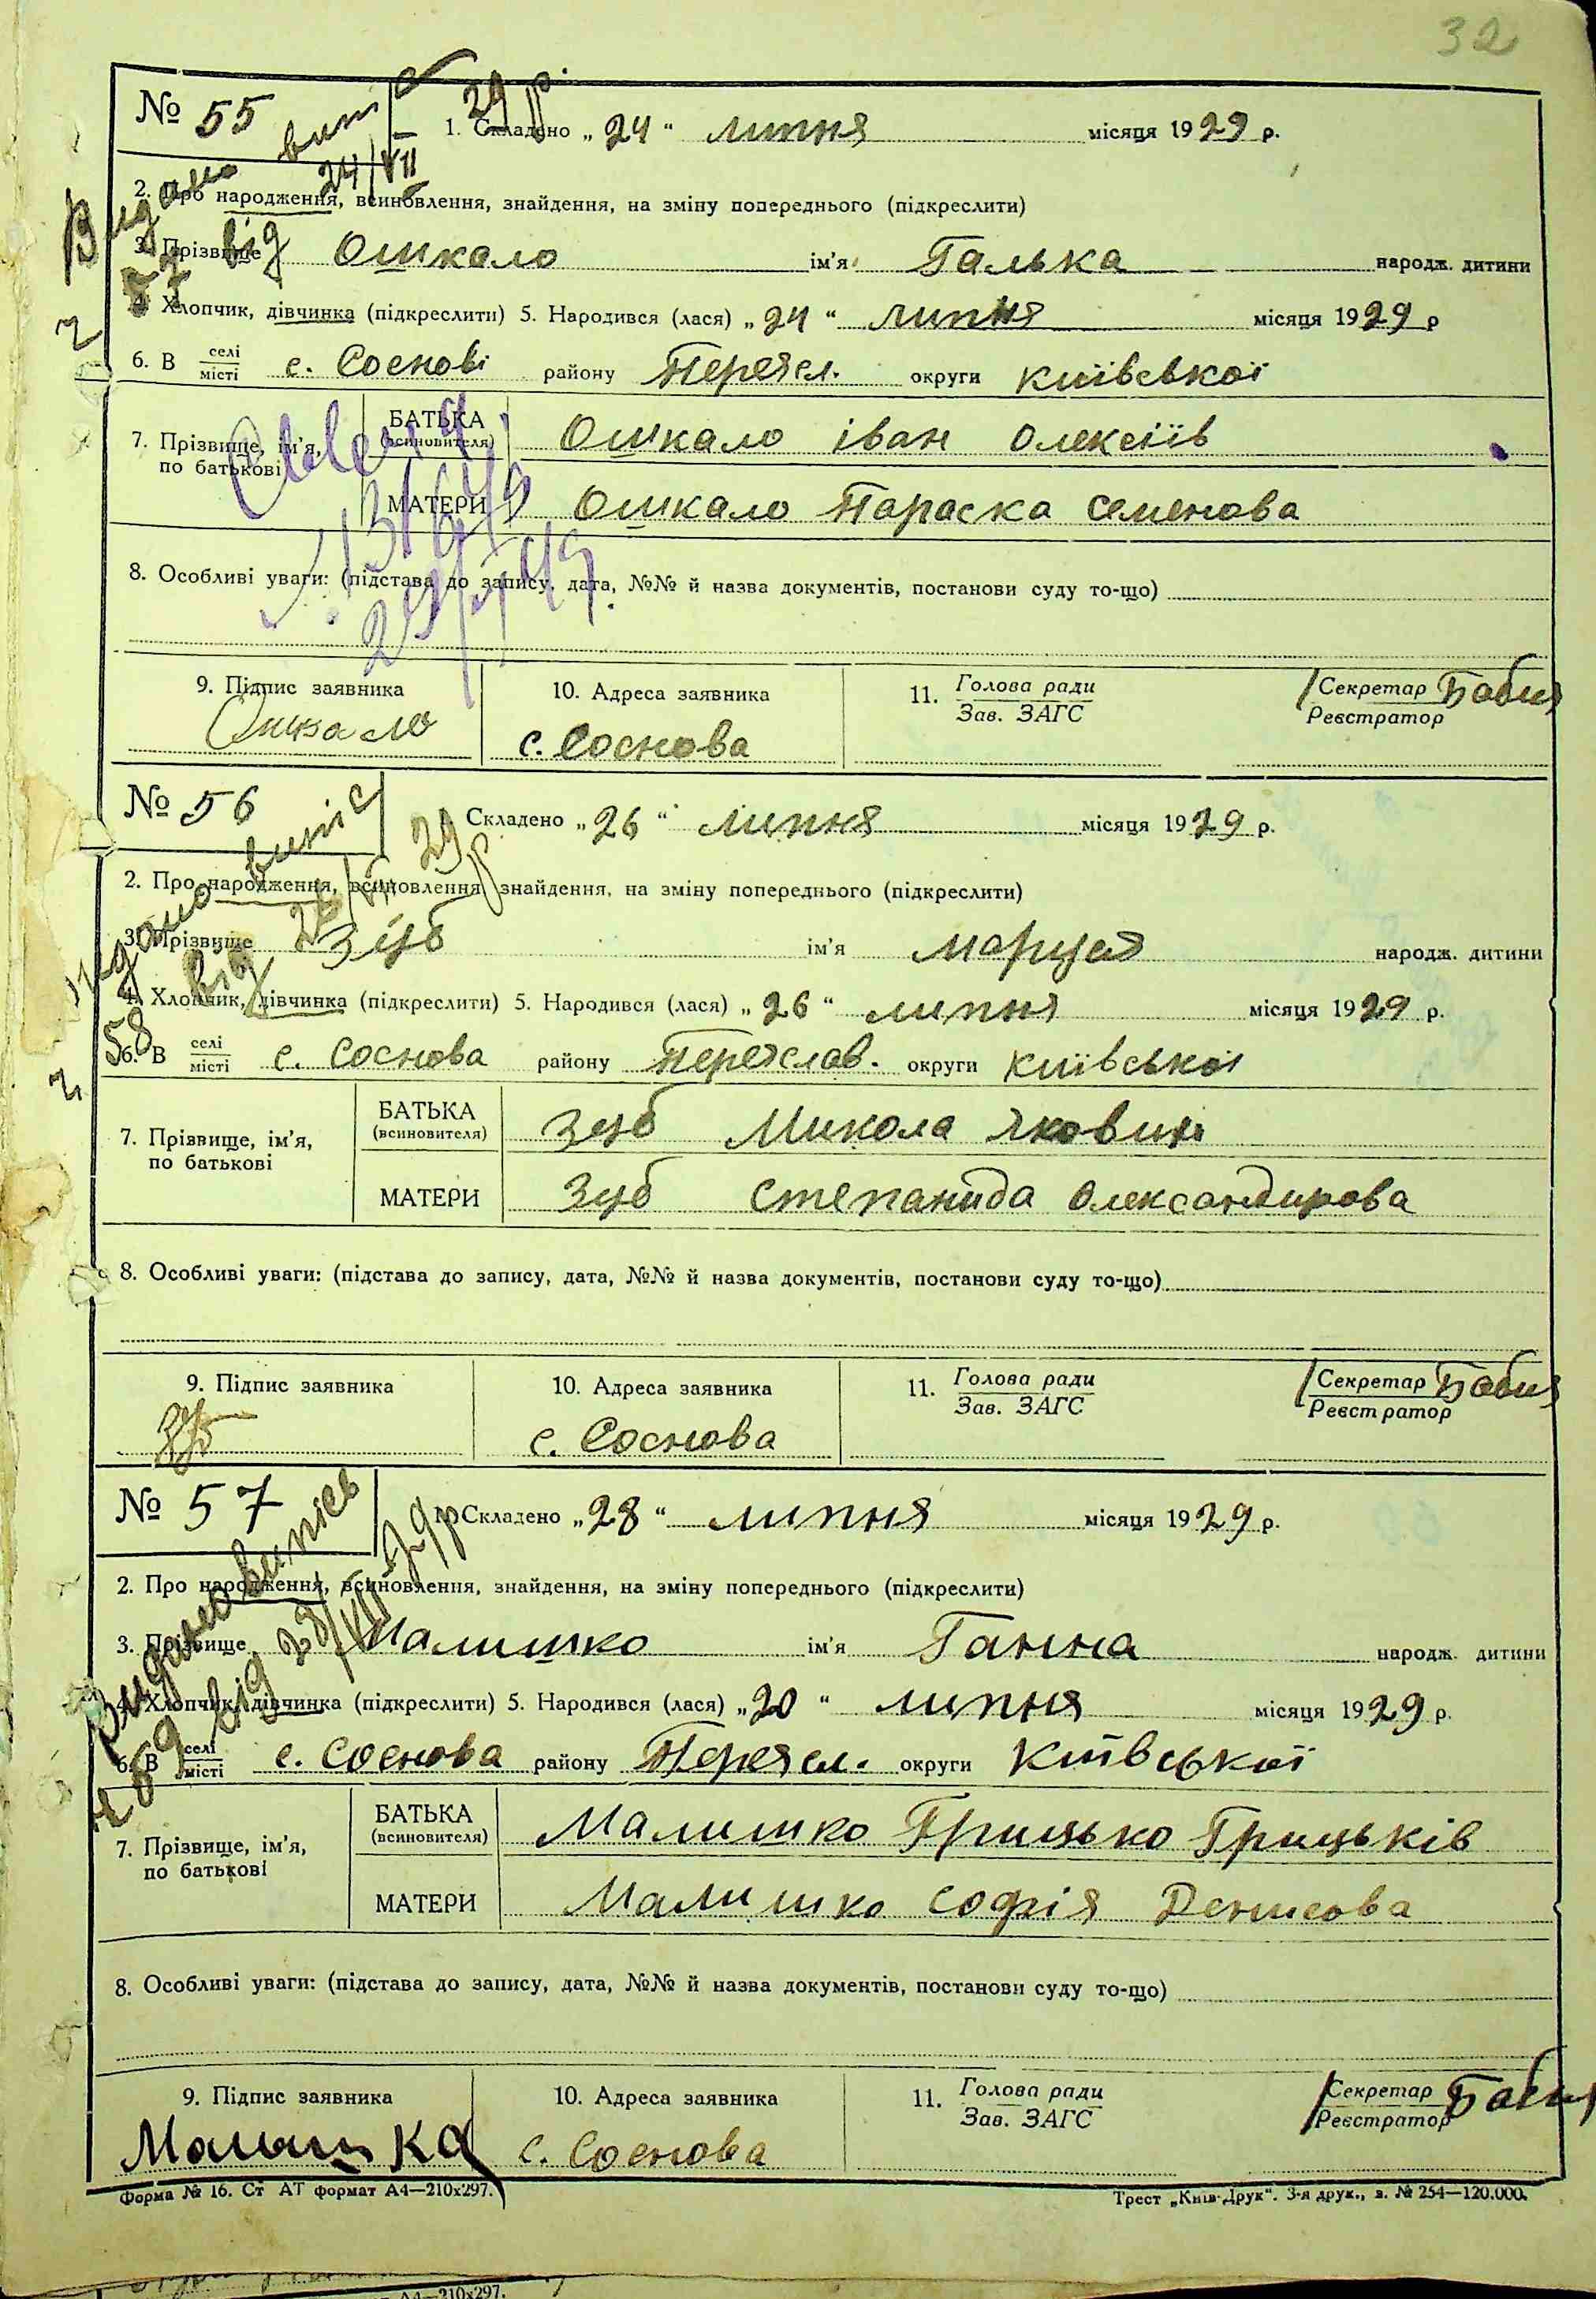 32
№ 55
1. Складено „24“ липня місяця 1929 р.
2. Про народження, всиновлення, знайдення, на зміну попереднього (підкреслити)
3. Прізвище Ошкало ім'я Галька народж. дитини
Хлопчик, дівчинка (підкреслити) 5. Народився (лася) „24“ липня місяця 1929 р
6. В селі місті с. Соснові району Переясл. округи київської
7. Прізвище, ім'я, по батькові
БАТЬКА (всиновителя) Ошкало іван Олексіїв
МАТЕРИ Ошкало Параска Семенова
8. Особливі уваги: (підстава до запису, дата, №№ й назва документів, постанови суду то-що)
9. Підпис заявника Ошкало
10. Адреса заявника с. Соснова
11. Голова ради Зав. ЗАГС
Секретар Реєстратор
Видано від 24/VII 29 р.
№ 56
Складено „26“ липня місяця 1929 р.
2. Про народження, всиновлення, знайдення, на зміну попереднього (підкреслити)
3. Прізвище Зуб ім'я Маруся народж. дитини
4. Хлопчик, дівчинка (підкреслити) 5. Народився (лася) „26“ липня місяця 1929 р.
6. В селі місті с. Соснова району Переяслав. округи київської
7. Прізвище, ім'я, по батькові
БАТЬКА (всиновителя) Зуб Микола
МАТЕРИ Зуб Степанида Олександирова
8. Особливі уваги: (підстава до запису, дата, №№ й назва документів, постанови суду то-що)
9. Підпис заявника Зуб
10. Адреса заявника с. Соснова
11. Голова ради Зав. ЗАГС
Секретар Реєстратор
58 від 29 р
№ 57
Складено „28“ липня місяця 1929 р.
2. Про народження, всиновлення, знайдення, на зміну попереднього (підкреслити)
3. Прізвище Малишко ім'я Ганна народж. дитини
4. Хлопчик, дівчинка (підкреслити) 5. Народився (лася) „20“ липня місяця 1929 р.
6. В селі місті с. Соснова району Переясл. округи Київської
7. Прізвище, ім'я, по батькові
БАТЬКА (всиновителя) Малишко Грицько Грицьків
МАТЕРИ Малишко Софія Денисова
8. Особливі уваги: (підстава до запису, дата, №№ й назва документів, постанови суду то-що)
9. Підпис заявника
10. Адреса заявника с. Соснова
11. Голова ради Зав. ЗАГС
Секретар Реєстратор
Видано від 28/VII 29 р
Форма № 16. Ст АТ формат А4—210х297.
Трест „Київ-Друк“. 3-я друк., з. № 254—120.000.
А4—210х297.